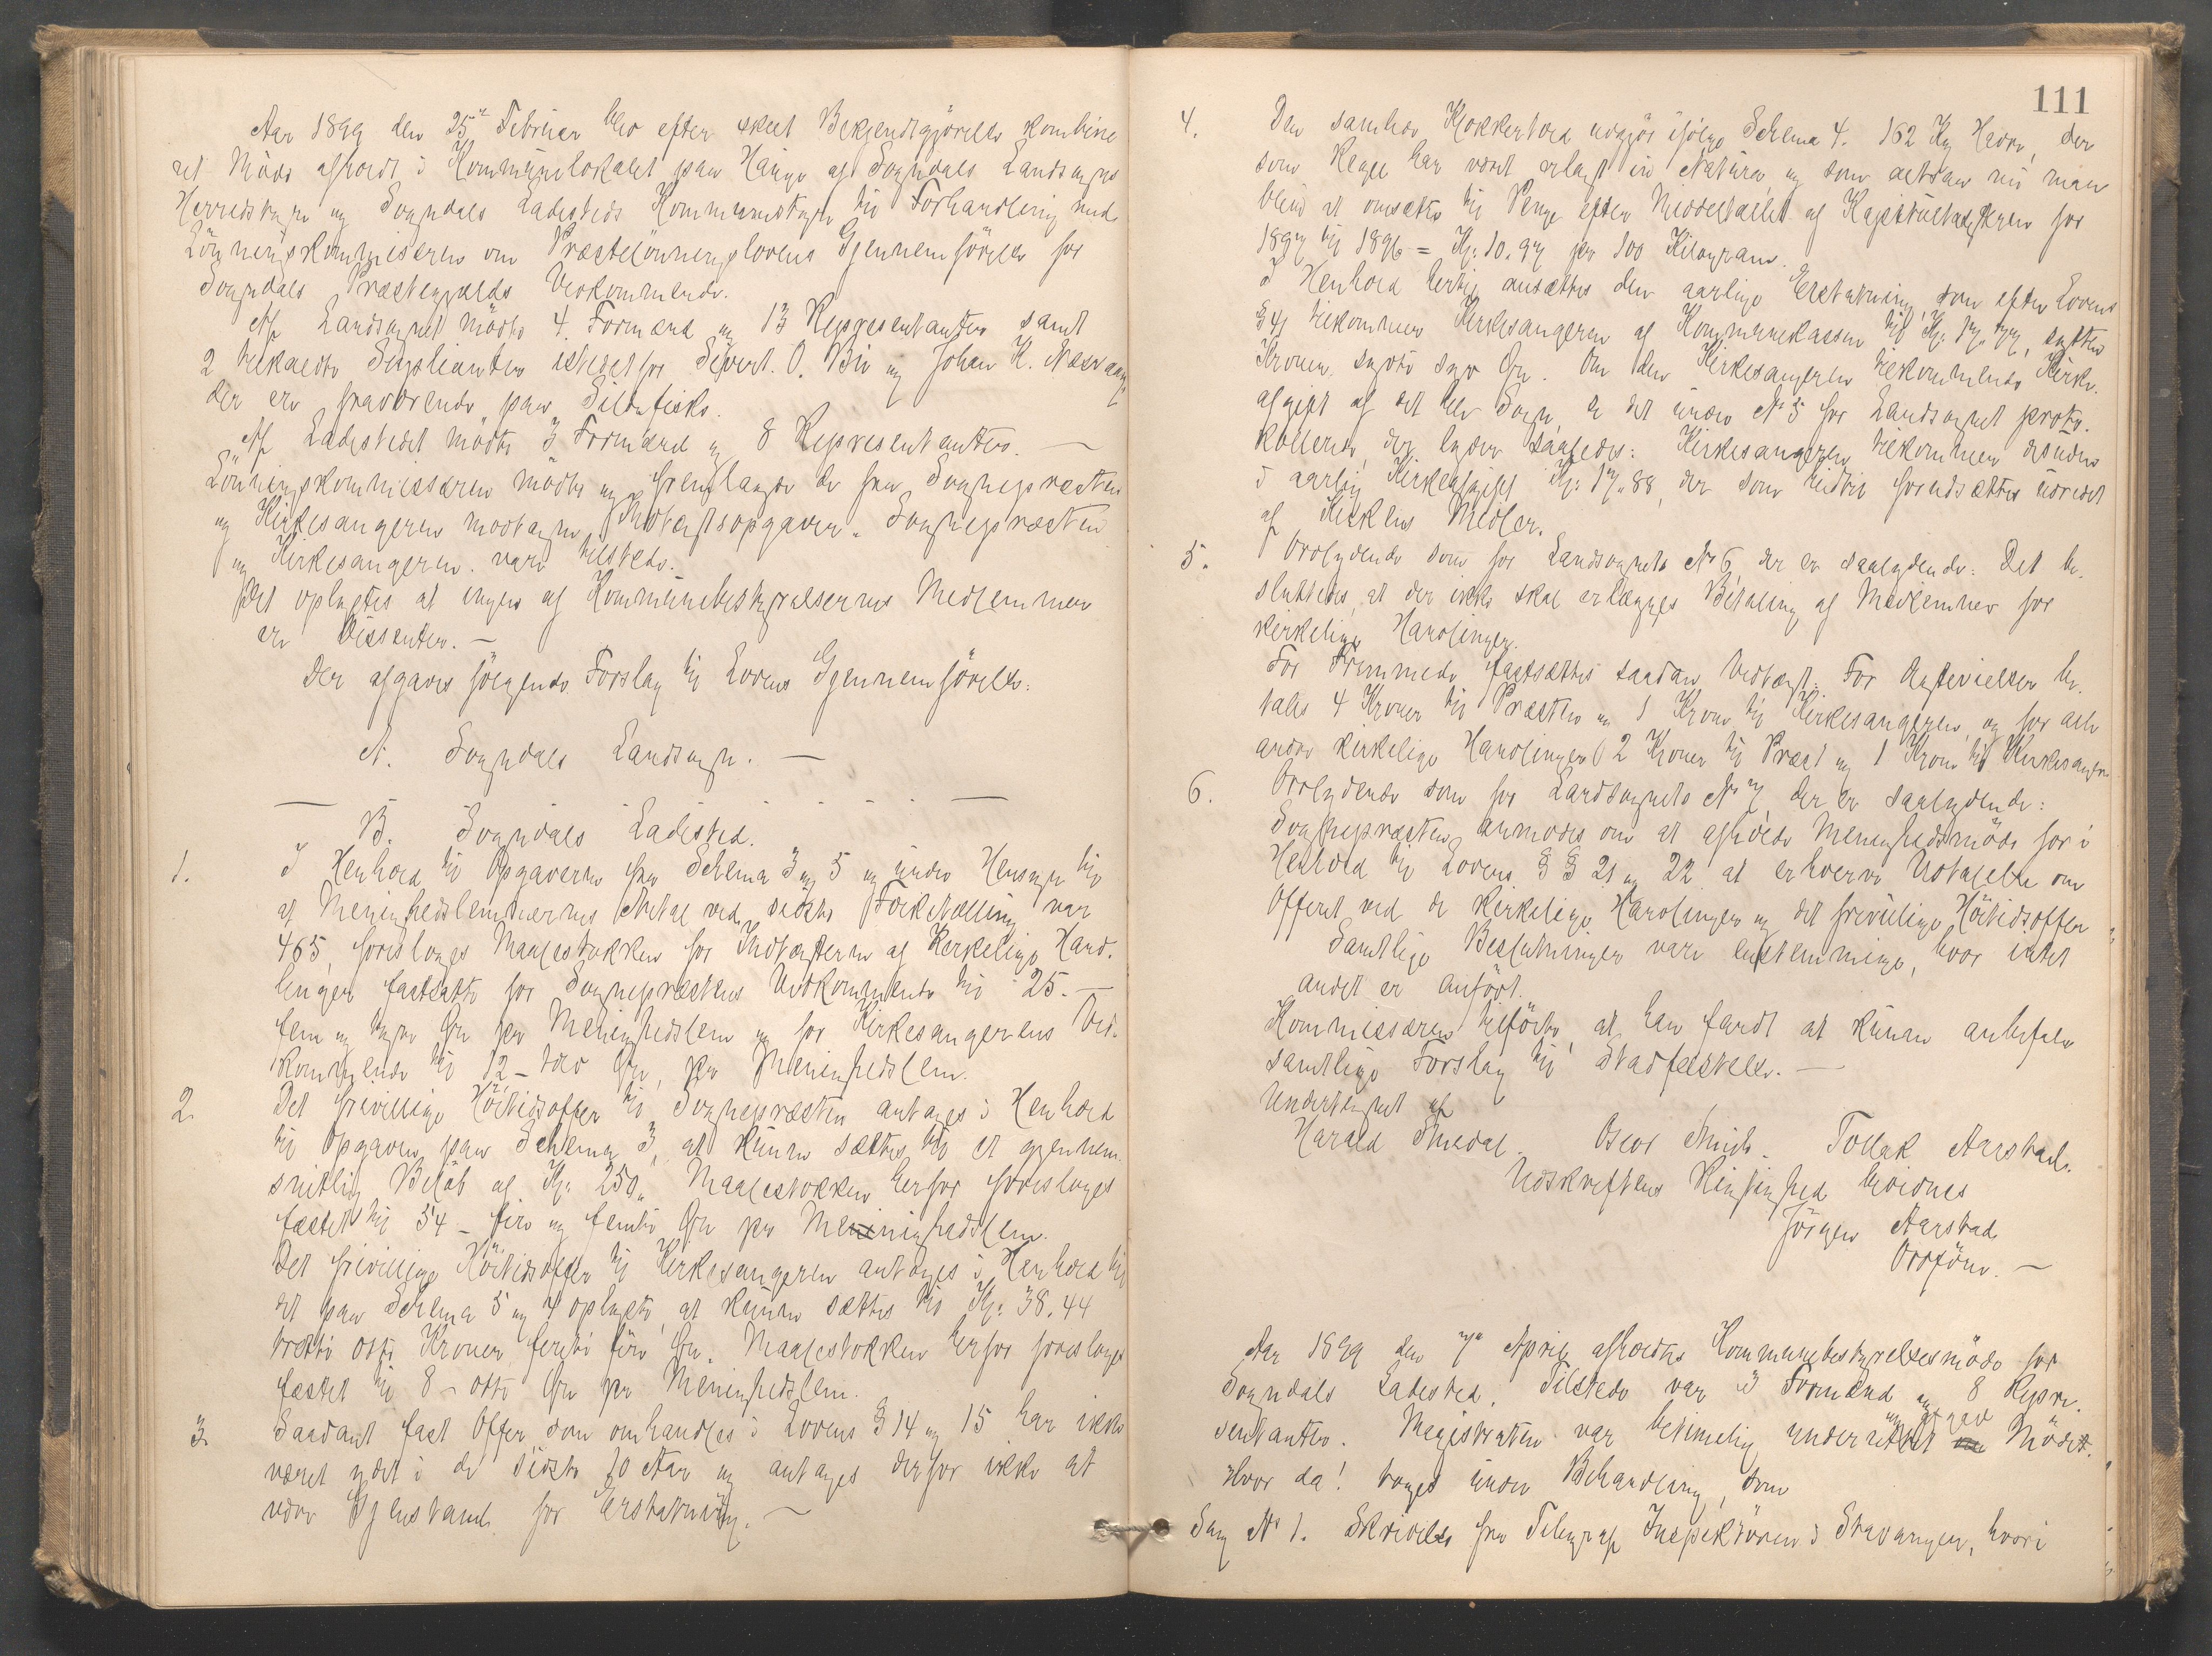 Aar 1899 den 25de Februar blev efter skeet Bekjendtgjörelse kombine
ret Möde afholdt i Kommunelokalet paa Hauge af Sogndals Landsogns
Herredstyre og Sogndals Ladesteds Kommunestyre til Forhandling med
Lönningskommisæren om Præstelönningslovens Gjennemförelse for
Sogndals Præstegjelds Vedkommende.
Af Landsognet mödte 4 Formænd og 13 Repræsentanter samt
2 tilkaldte Suplianter istedetfor Sivert O. Bö og Johan K. Næsvaag,
der ere fraværende paa Sildefiske.
Af Ladestedet mödte 3 Formænd og 8 Repræsentanter. —
Lönningskommissæren mödte og fremlagde de fra Sognepræsten
og Kirkesangeren modtagne Indtægtsopgaver. Sognepræsten
og Kirkesangeren vare tilstede.
Det oplystes at ingen af Kommunebestyrelsernes Medlemmer
er Dissenter. —
Der afgaves fölgende Forslag til Lovens Gjennemförelse:
A. Sogndals Landsogn. —
— . . . . . —
B. Sogndals Ladested.
1. I Henhold til Opgaverne paa Schema 3 og 5 og under Hensyn til
at Menighedslemmernes Antal ved sidste Folketælling var
465, foreslaaes Maalestokken for Indtægterne af Kirkelige Hand-
linger fastsatte for Sognepræstens Vedkommende til 25. —
fem og tyve Öre per Menighedslem og for Kirkesangerens Ved-
kommende til 12 – tolv Öre, per Menighedslem.
2. Det frivillige Höitidsoffer til Sognepræsten antages i Henhold
til Opgaven paa Schema 3, at kunne sættes til et gjennem
snitlig Belöb af Kr. 250,, Maalestokken herfor foreslaaes
fastet til 54 – fire og femti Öre per Menighedslem.
Det frivillige Höitidsoffer til Kirkesangeren antages i Henhold til
det paa Schema 5 og 7 oplyste, at kunne sættes til Kr. 38.44
tretti otte Kroner, forti fire Öre. Maalestokken herfor foreslaaes
fastet til 8 – otte Öre per Menighedslem.
3. Saadant fast Offer som omhandles i Lovens § 14 og 15 har ikke
været ydet i de sidste 10 Aar og antages derfor ikke at
være Gjenstand for Erstatning. —
111
4. Den samlede Klokkertold udgjör ifölge Schema 4. 162 Kg Havre, der
som Regel har været erlagt in Natura og som altsaa nu maa
blive at omsætte til Penge efter Middeltallet af Kapitelstaksterne for
1897 til 1896 = Kr. 10.97 per 100 Kilogram.
I Henhold hertil ansættes den aarlige Erstatning, som efter Lovens
§ 41 tilkommer Kirkesangeren af Kommunekassen til Kr. 17.77, sytten
Kroner sytti syv Öre. Om den Kirkesangeren tilkommende Kirke-
afgift af det hele Sogn, er det under No 5 for Landsognet proto-
kollerede, der lyder saaledes: Kirkesangeren tilkommer desuden
i aarlig Kirkeafgift Kr. 17.88, der som hidtil forudsættes udredet
af Kirkens Midler.
5. Ordlydende som for Landsognets No 6, der er saalydende: Det be-
sluttedes, at der ikke skal erlægges Betaling af Medlemmer for
kirkelige Handlinger.
For Fremmede fastsættes saadan Vedtægt: For Ægtevielser be-
tales 4 Kroner til Præsten og 1 Krone til Kirkesangeren, og for alle
andre kirkelige Handlinger 2 Kroner til Præst og 1 Krone til Kirkesanger.
6. Ordlydende som for Landsognets No 7 der er saalydende:
Sognepræsten anmodes om at afholde Menighedsmöde for i
Henhold til Lovens §§ 21 og 22 at erhverve Udtalelse om
Offeret ved de kirkelige Handlinger og det frivillige Höitidsoffer.
Samtlige Beslutninger vare enstemmige, hvor intet
andet er anfört.
Kommissæren tilförte, at han fandt at kunne anbefale
samtlige Forslag til Stadfæstelse. —
Undertegnet af
Harald Smedal. Oscar Munch. Tollak Aarstad.
Udskriftens Rigtighed bevidnes
Jörgen Aarstad
Ordförer. —
Aar 1899 den 7de April afholdtes Kommunebestyrelsesmöde for
Sogndals Ladested. Tilstede var 3 Formænd og 8 Repre-
sentanter. Magistraten var betimelig underrettet om Mödet.
Hvor da! toges under Behandling, som
Sag No 1. Skrivelse fra Telegraf Inspektören i Stavanger, hvori